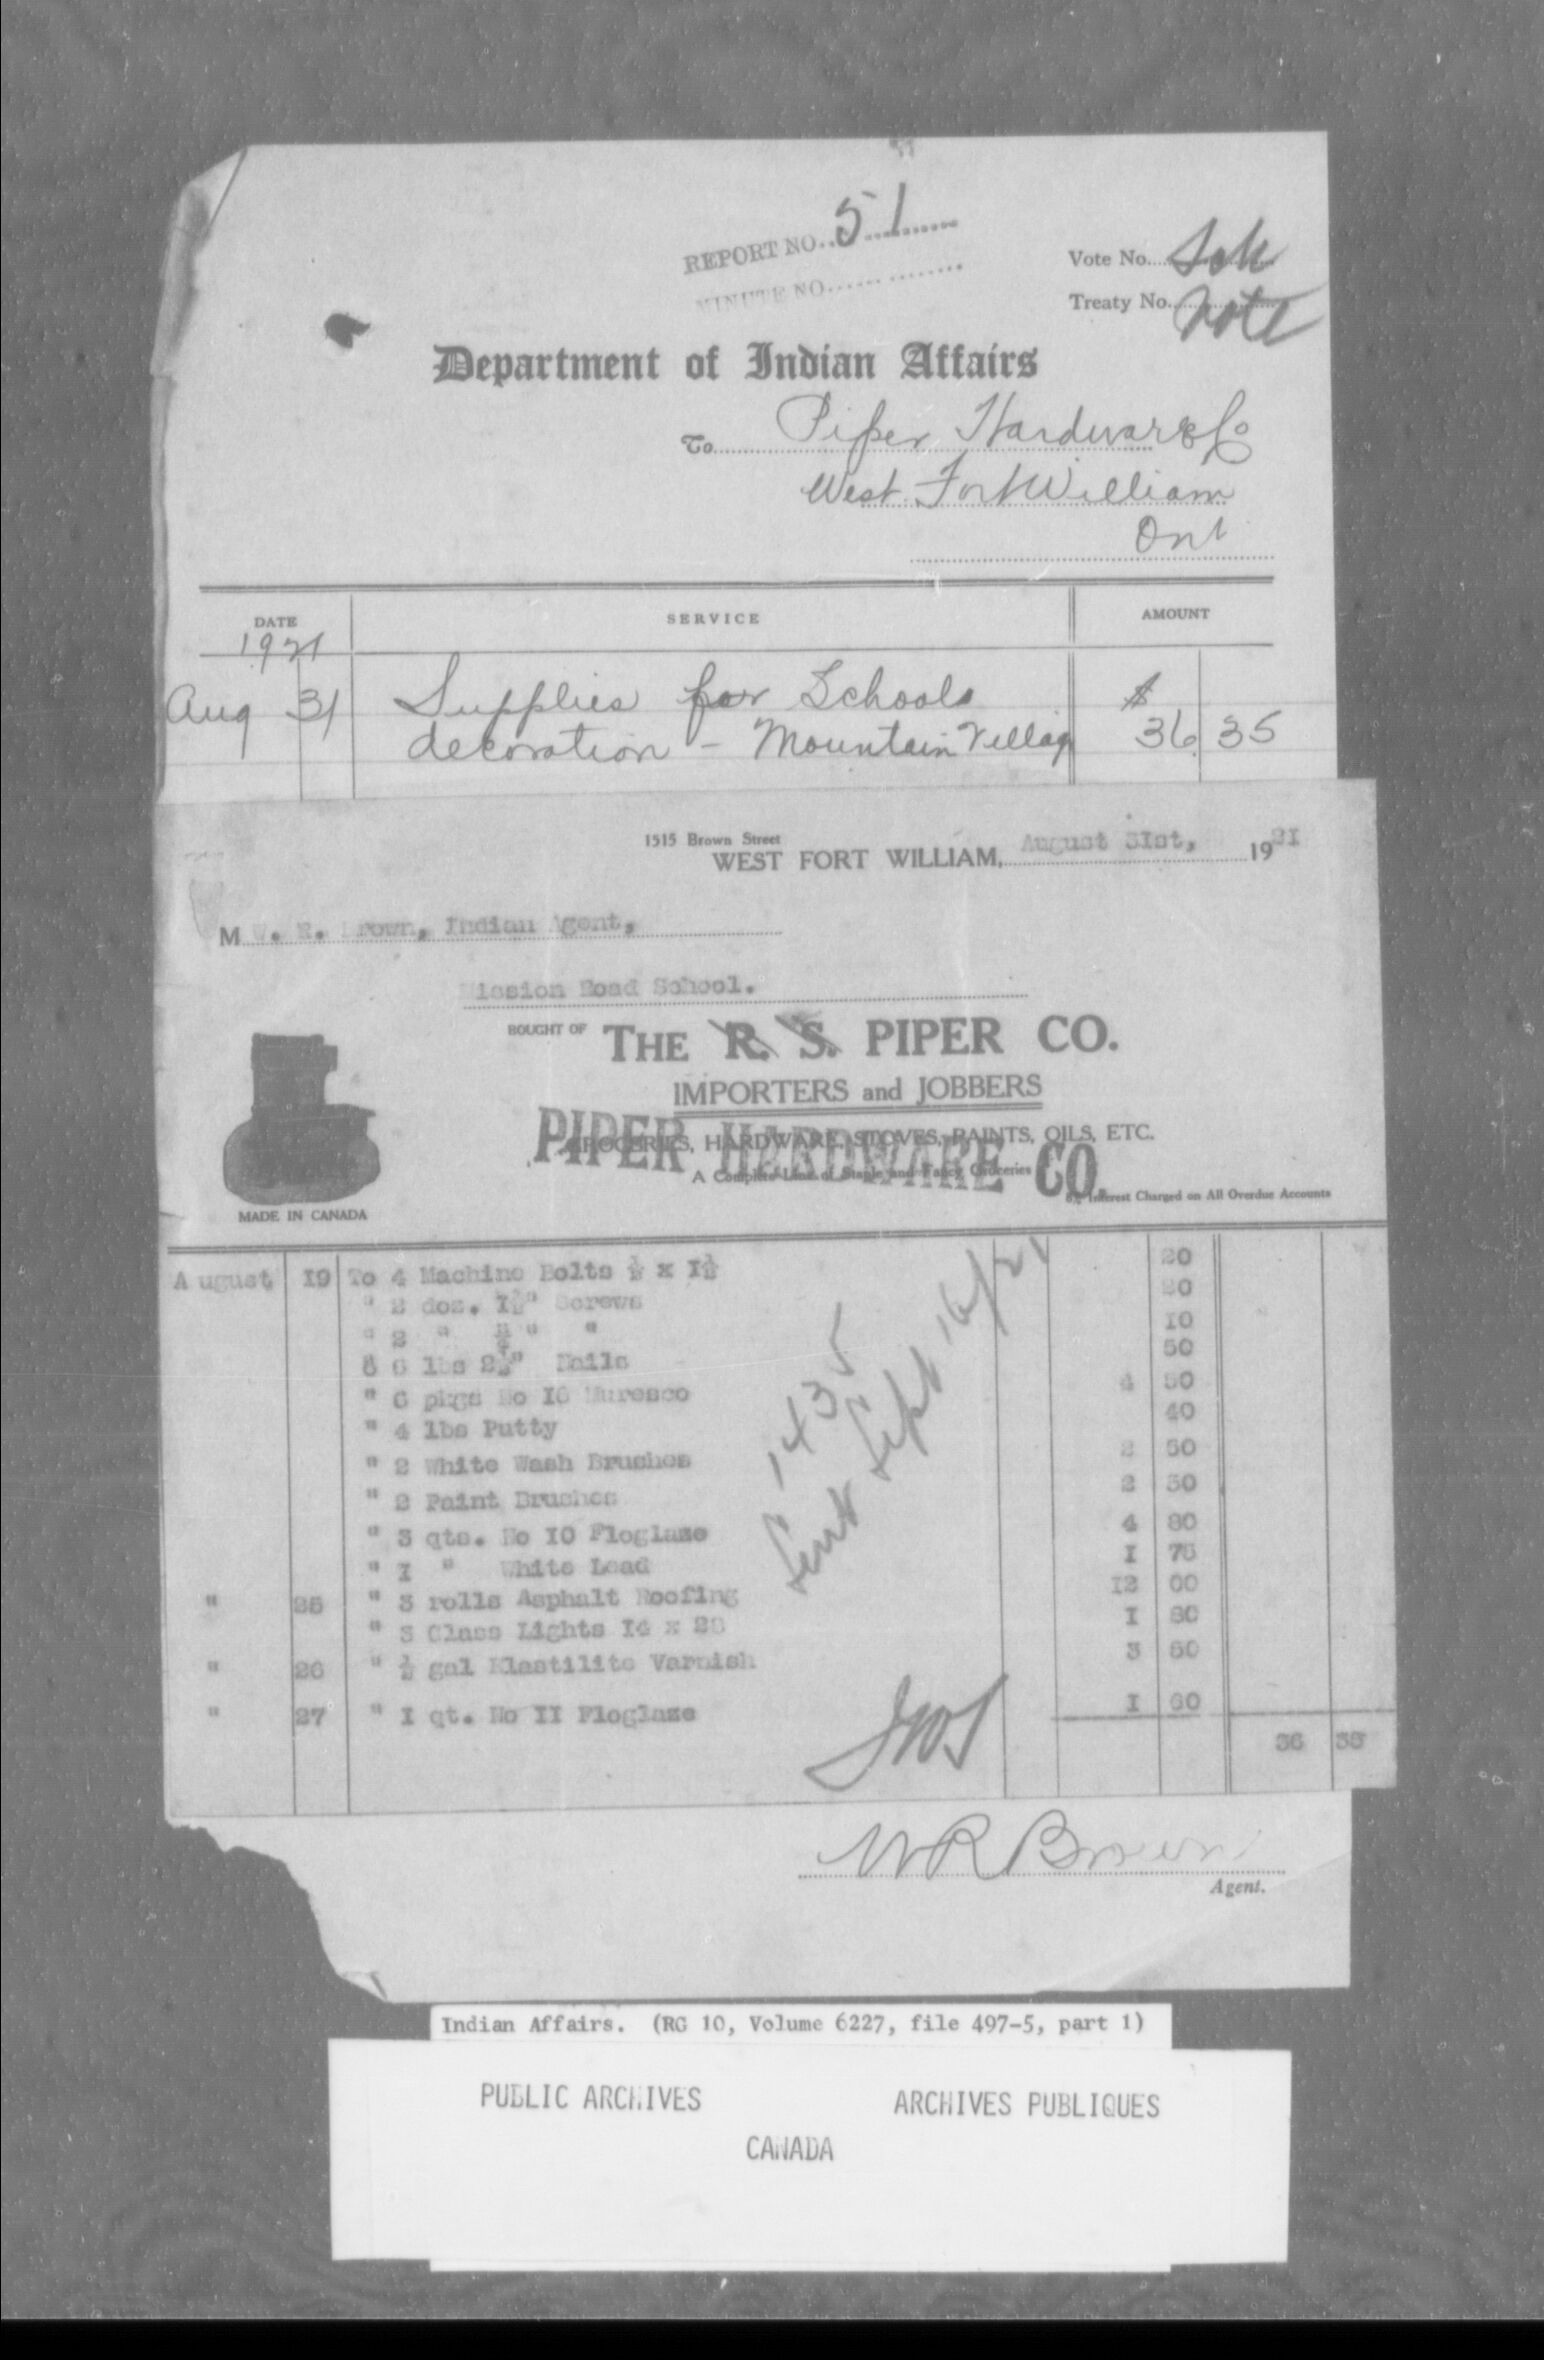 REPORT NO. 51
MINUTE NO.
Vote No. Sch
Treaty No. Vote
Department of Indian Affairs
To Piper Hardware Co
West Fort William
Ont
DATE SERVICE AMOUNT
1921
Aug 31 Supplies for Schools $
decoration - Mountain Village 36 35
1515 Brown Street
WEST FORT WILLIAM, August 3Ist, 1921
M W. R. Brown, Indian Agent,
Mission Road School.
BOUGHT OF THE R. S. PIPER CO.
IMPORTERS and JOBBERS
GROCERIES, HARDWARE, STOVES, PAINTS, OILS, ETC.
PIPER HARDWARE CO.
A Complete Line of Staple and Fancy Groceries
8% Interest Charged on All Overdue Accounts
MADE IN CANADA
August I9 To 4 Machine Bolts ½ x I½ 20
" 2 doz. I½" Screws 20
" 2 " ¾" " I0
6 lbs 2½" Nails 50
" 6 pkgs No I6 Muresco 4 50
" 4 lbs Putty 40
" 2 White Wash Brushes 2 50
" 2 Paint Brushes 2 50
" 3 qts. No I0 Floglaze 4 80
" I " White Lead I 75
" 25 " 3 rolls Asphalt Roofing I2 00
" 3 Glass Lights I4 x 28 I 80
" 26 " ½ gal Elastilite Varnish 3 50
" 27 " I qt. No II Floglaze I 60
36 35
C 1435
Sent Sept 16/21
W R Brown
Agent.
Indian Affairs. (RG 10, Volume 6227, file 497-5, part 1)
PUBLIC ARCHIVES ARCHIVES PUBLIQUES
CANADA